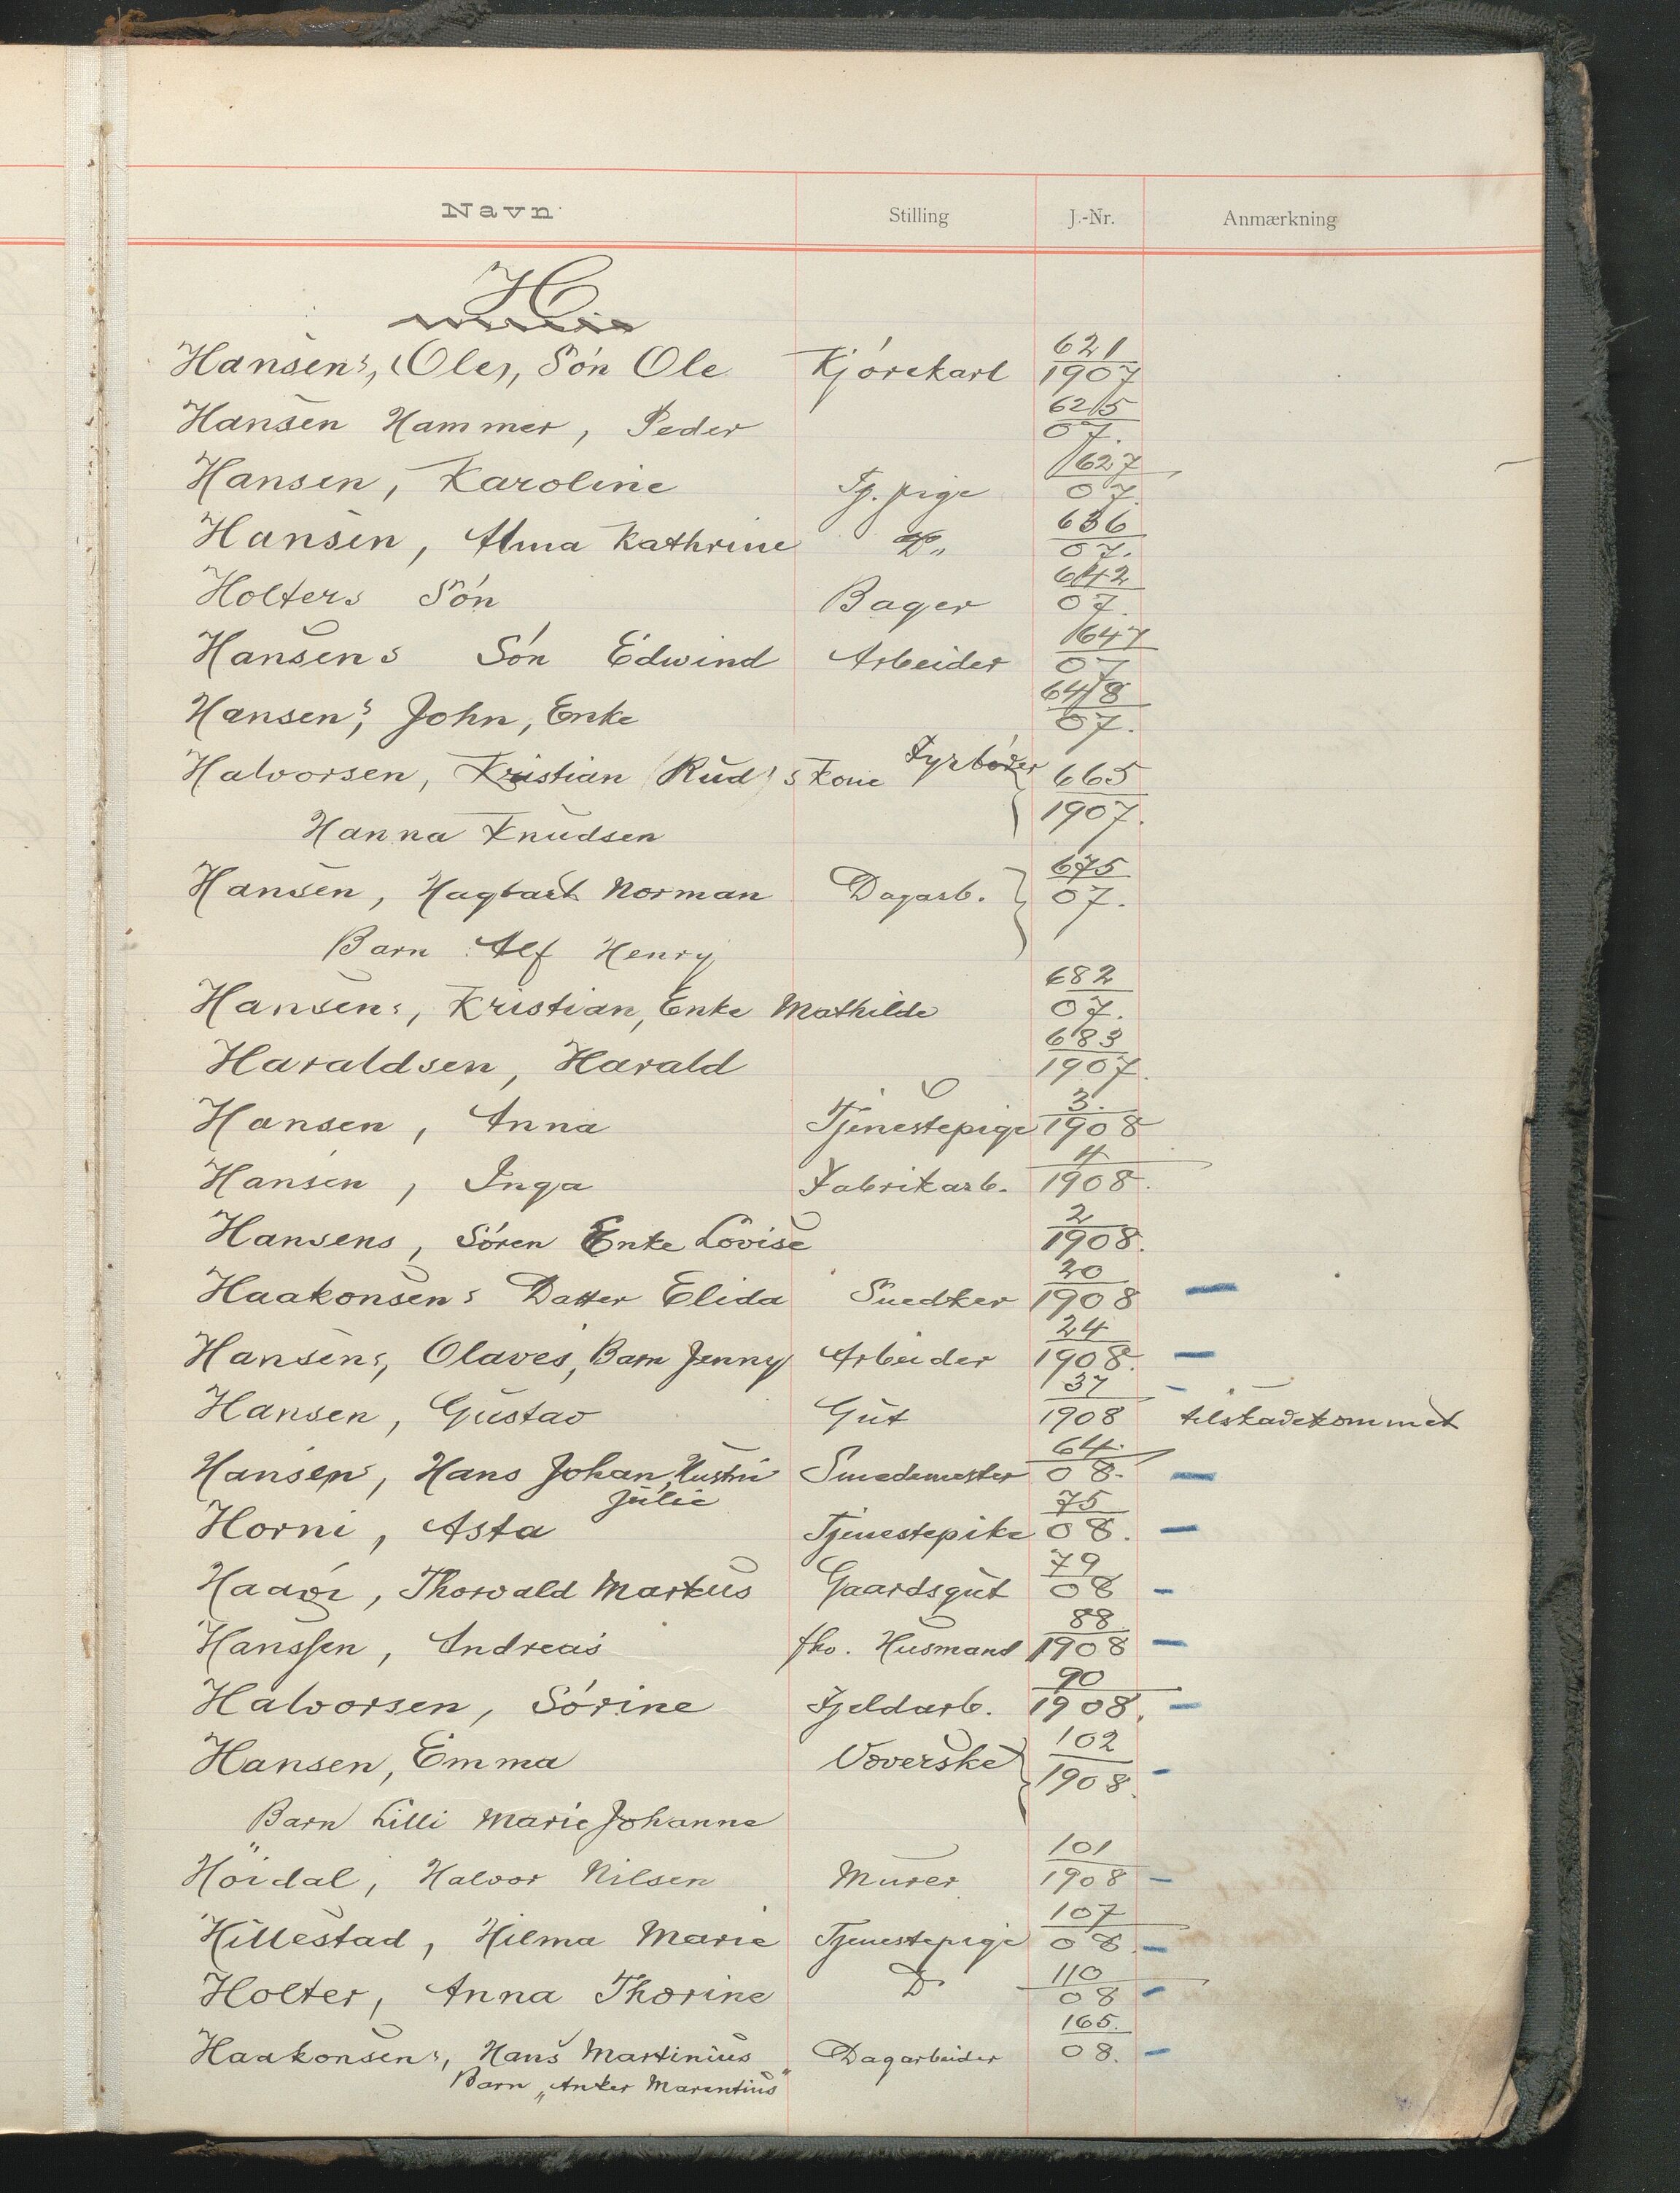 Navn Stilling J.-Nr. Anmærkning
H
Hansen's, (Ole), Sön Ole Kjörekarl 621/1907
Hansen Hammer, Peder 625/07.
Hansen, Karoline Tj. pige 627/07.
Hansen, Alma Kathrine Do „ 636/07.
Holters Sön Bager 642/07.
Hansens Sön Edwind Arbeider 647/07
Hansen's, John, Enke 648/07.
Halvorsen, Kristian (Rud)s Kone Fyrböder 665/1907.
Hanna Knudsen
Hansen, Hagbart Norman Dagarb. 675/07.
Barn Alf Henry
Hansens, Kristian, Enke Mathilde 682/07.
Haraldsen, Harald 683/1907.
Hansen, Anna Tjenestepige 3./1908
Hansen, Inga Fabrikarb. 4/1908.
Hansens, Sören Enke Lovise 2/1908.
Haakonsen's Datter Elida Snedker 20/1908 —
Hansens, Olaves, Barn Jenny Arbeider 24/1908. —
Hansen, Gustav Gut 37/1908 — tilskadekommet
Hansen's, Hans Johan, Hustru Smedemester 64/08. —
Julie
Horni, Asta Tjenestepike 75/08. —
Thorvald Markus Gaardsgut 79/08 —
Hanssen, Andreas fhv. Husmand 88/1908 —
Halvorsen, Sörine Fjeldarb. 90/1908. —
Hansen, Emma Væverske 102/1908. —
Barn Lilli Marie Johanne
Höidal, Halvor Nilsen Murer 101/1908 —
Hillestad, Hilma Marie Tjenestepige 107/08 —
Holter, Anna Thorine Do 110/08 —
Haakonsens, Hans Martinius Dagarbeider 165./08. —
Barn „Anker Marentius"